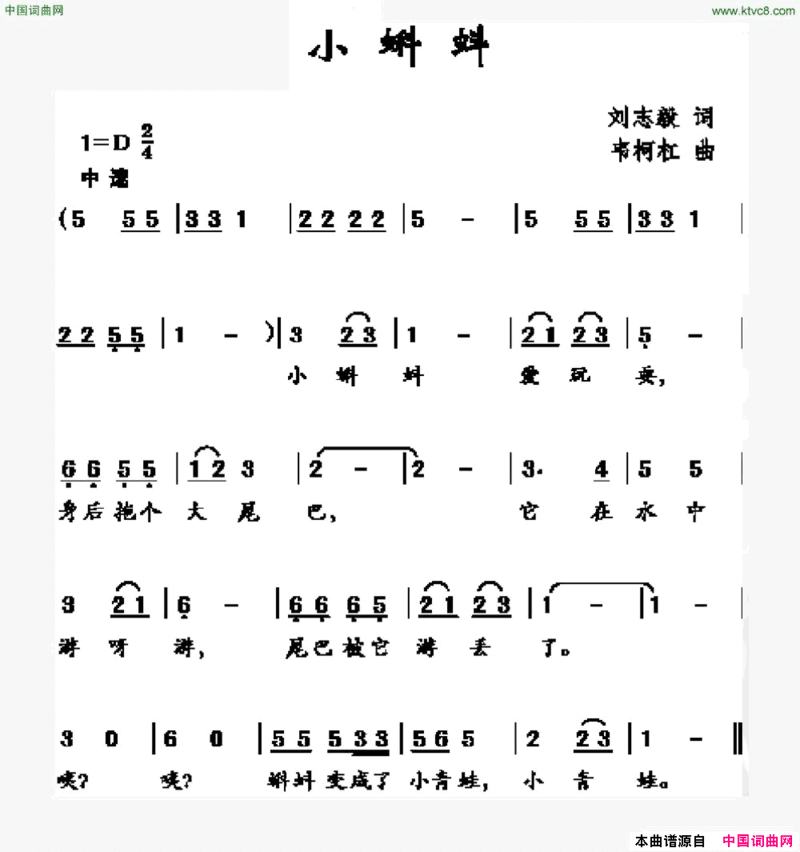 中国词曲网
www.ktvc8.com
小蝌蚪
刘志毅 词
韦柯杠 曲
1=D 2/4
中速
(5 55 | 33 1 | 22 22 | 5 - | 5 55 | 33 1 |
22 55 | 1 - ) | 3 23 | 1 - | 21 23 | 5 - |
小 蝌 蚪 爱 玩 耍,
66 55 | 12 3 | 2 - | 2 - | 3. 4 | 5 5 |
身后拖个 大 尾 巴, 它 在 水 中
3 21 | 6 - | 66 65 | 21 23 | 1 - | 1 - |
游 呀 游, 尾巴被它 游 丢 了。
3 0 | 6 0 | 55 533 | 56 5 | 2 23 | 1 - ‖
咦? 咦? 蝌蚪 变成了 小青蛙, 小 青 蛙。
本曲谱源自 中国词曲网